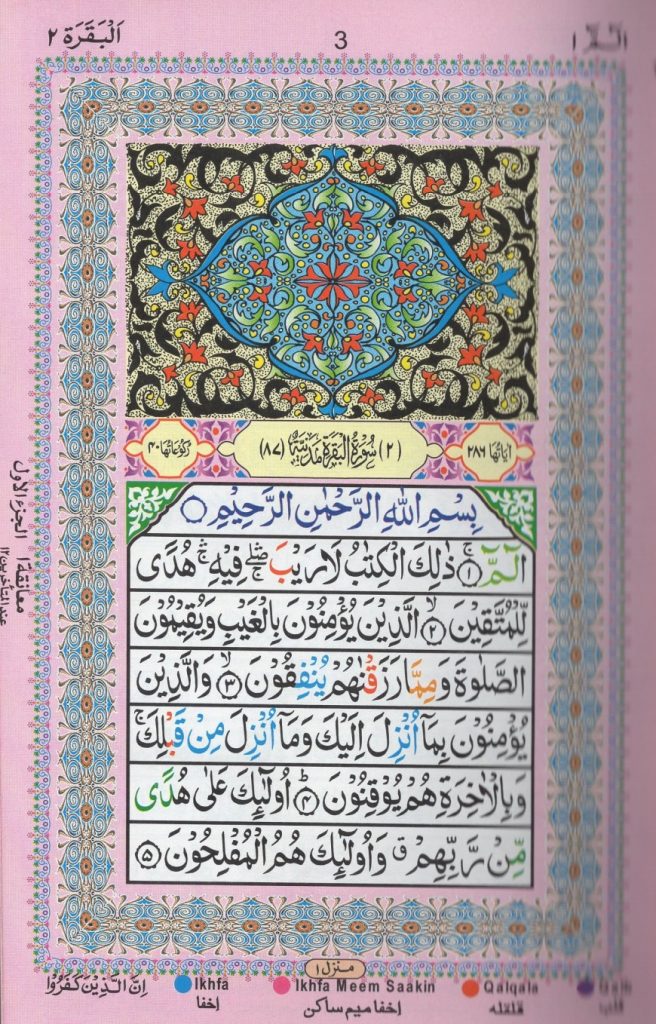 الٓمّٓ ١
3
اَلْبَقَرَة ٢
اٰيَاتُهَا ٢٨٦
(٢) سُوْرَةُ الْبَقَرَةِ مَدَنِيَّةٌ (٨٧)
رُكُوْعَاتُهَا ٤٠
بِسْمِ اللّٰهِ الرَّحْمٰنِ الرَّحِيْمِ
الٓمّٓ ۚ۝١ ذٰلِكَ الْكِتٰبُ لَا رَيْبَ ۖۛۚ فِيْهِ ۚۛ هُدًى
لِّلْمُتَّقِيْنَ ۙ۝٢ الَّذِيْنَ يُؤْمِنُوْنَ بِالْغَيْبِ وَيُقِيْمُوْنَ
الصَّلٰوةَ وَمِمَّا رَزَقْنٰهُمْ يُنْفِقُوْنَ ۙ۝٣ وَالَّذِيْنَ
يُؤْمِنُوْنَ بِمَاۤ اُنْزِلَ اِلَيْكَ وَمَاۤ اُنْزِلَ مِنْ قَبْلِكَ ۚ
وَبِالْاٰخِرَةِ هُمْ يُوْقِنُوْنَ ؕ۝٤ اُولٰٓئِكَ عَلٰى هُدًى
مِّنْ رَّبِّهِمْ ۗ وَاُولٰٓئِكَ هُمُ الْمُفْلِحُوْنَ ۝٥
الجزء الاول
معانقة ١
عند المتأخرين ١٢
منزل ١
اِنَّ الَّذِيْنَ كَفَرُوْا
Ikhfa
اخفا
Ikhfa Meem Saakin
اخفا میم ساکن
Qalqala
قلقله